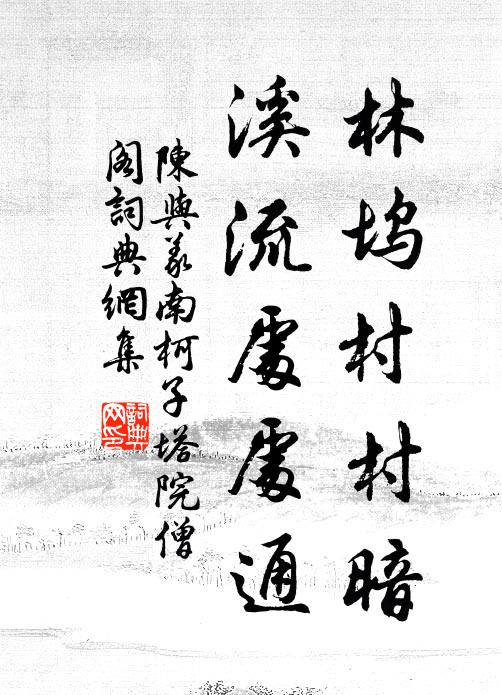 林塢村村暗
溪流處處通
陳與義南柯子塔院僧
閣詞典網集
詞典
网印